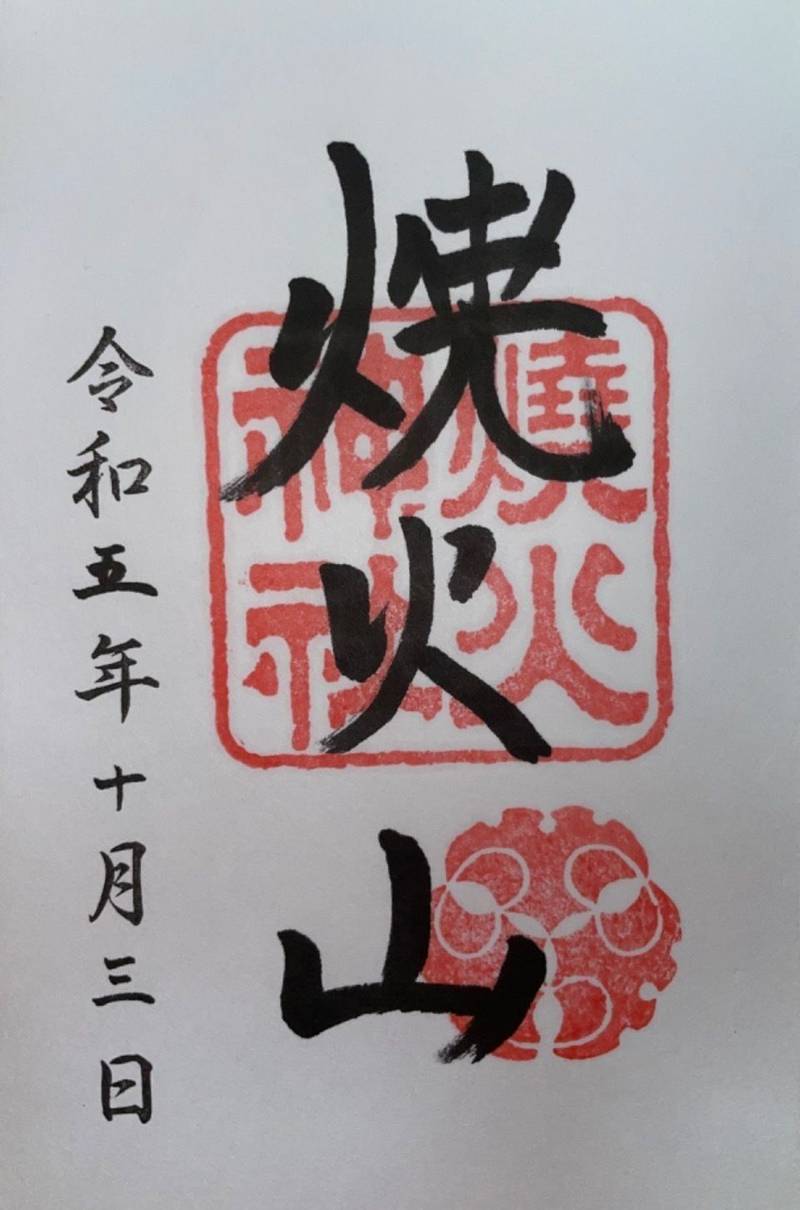 焼火山
燒火
神社
令和五年十月三日